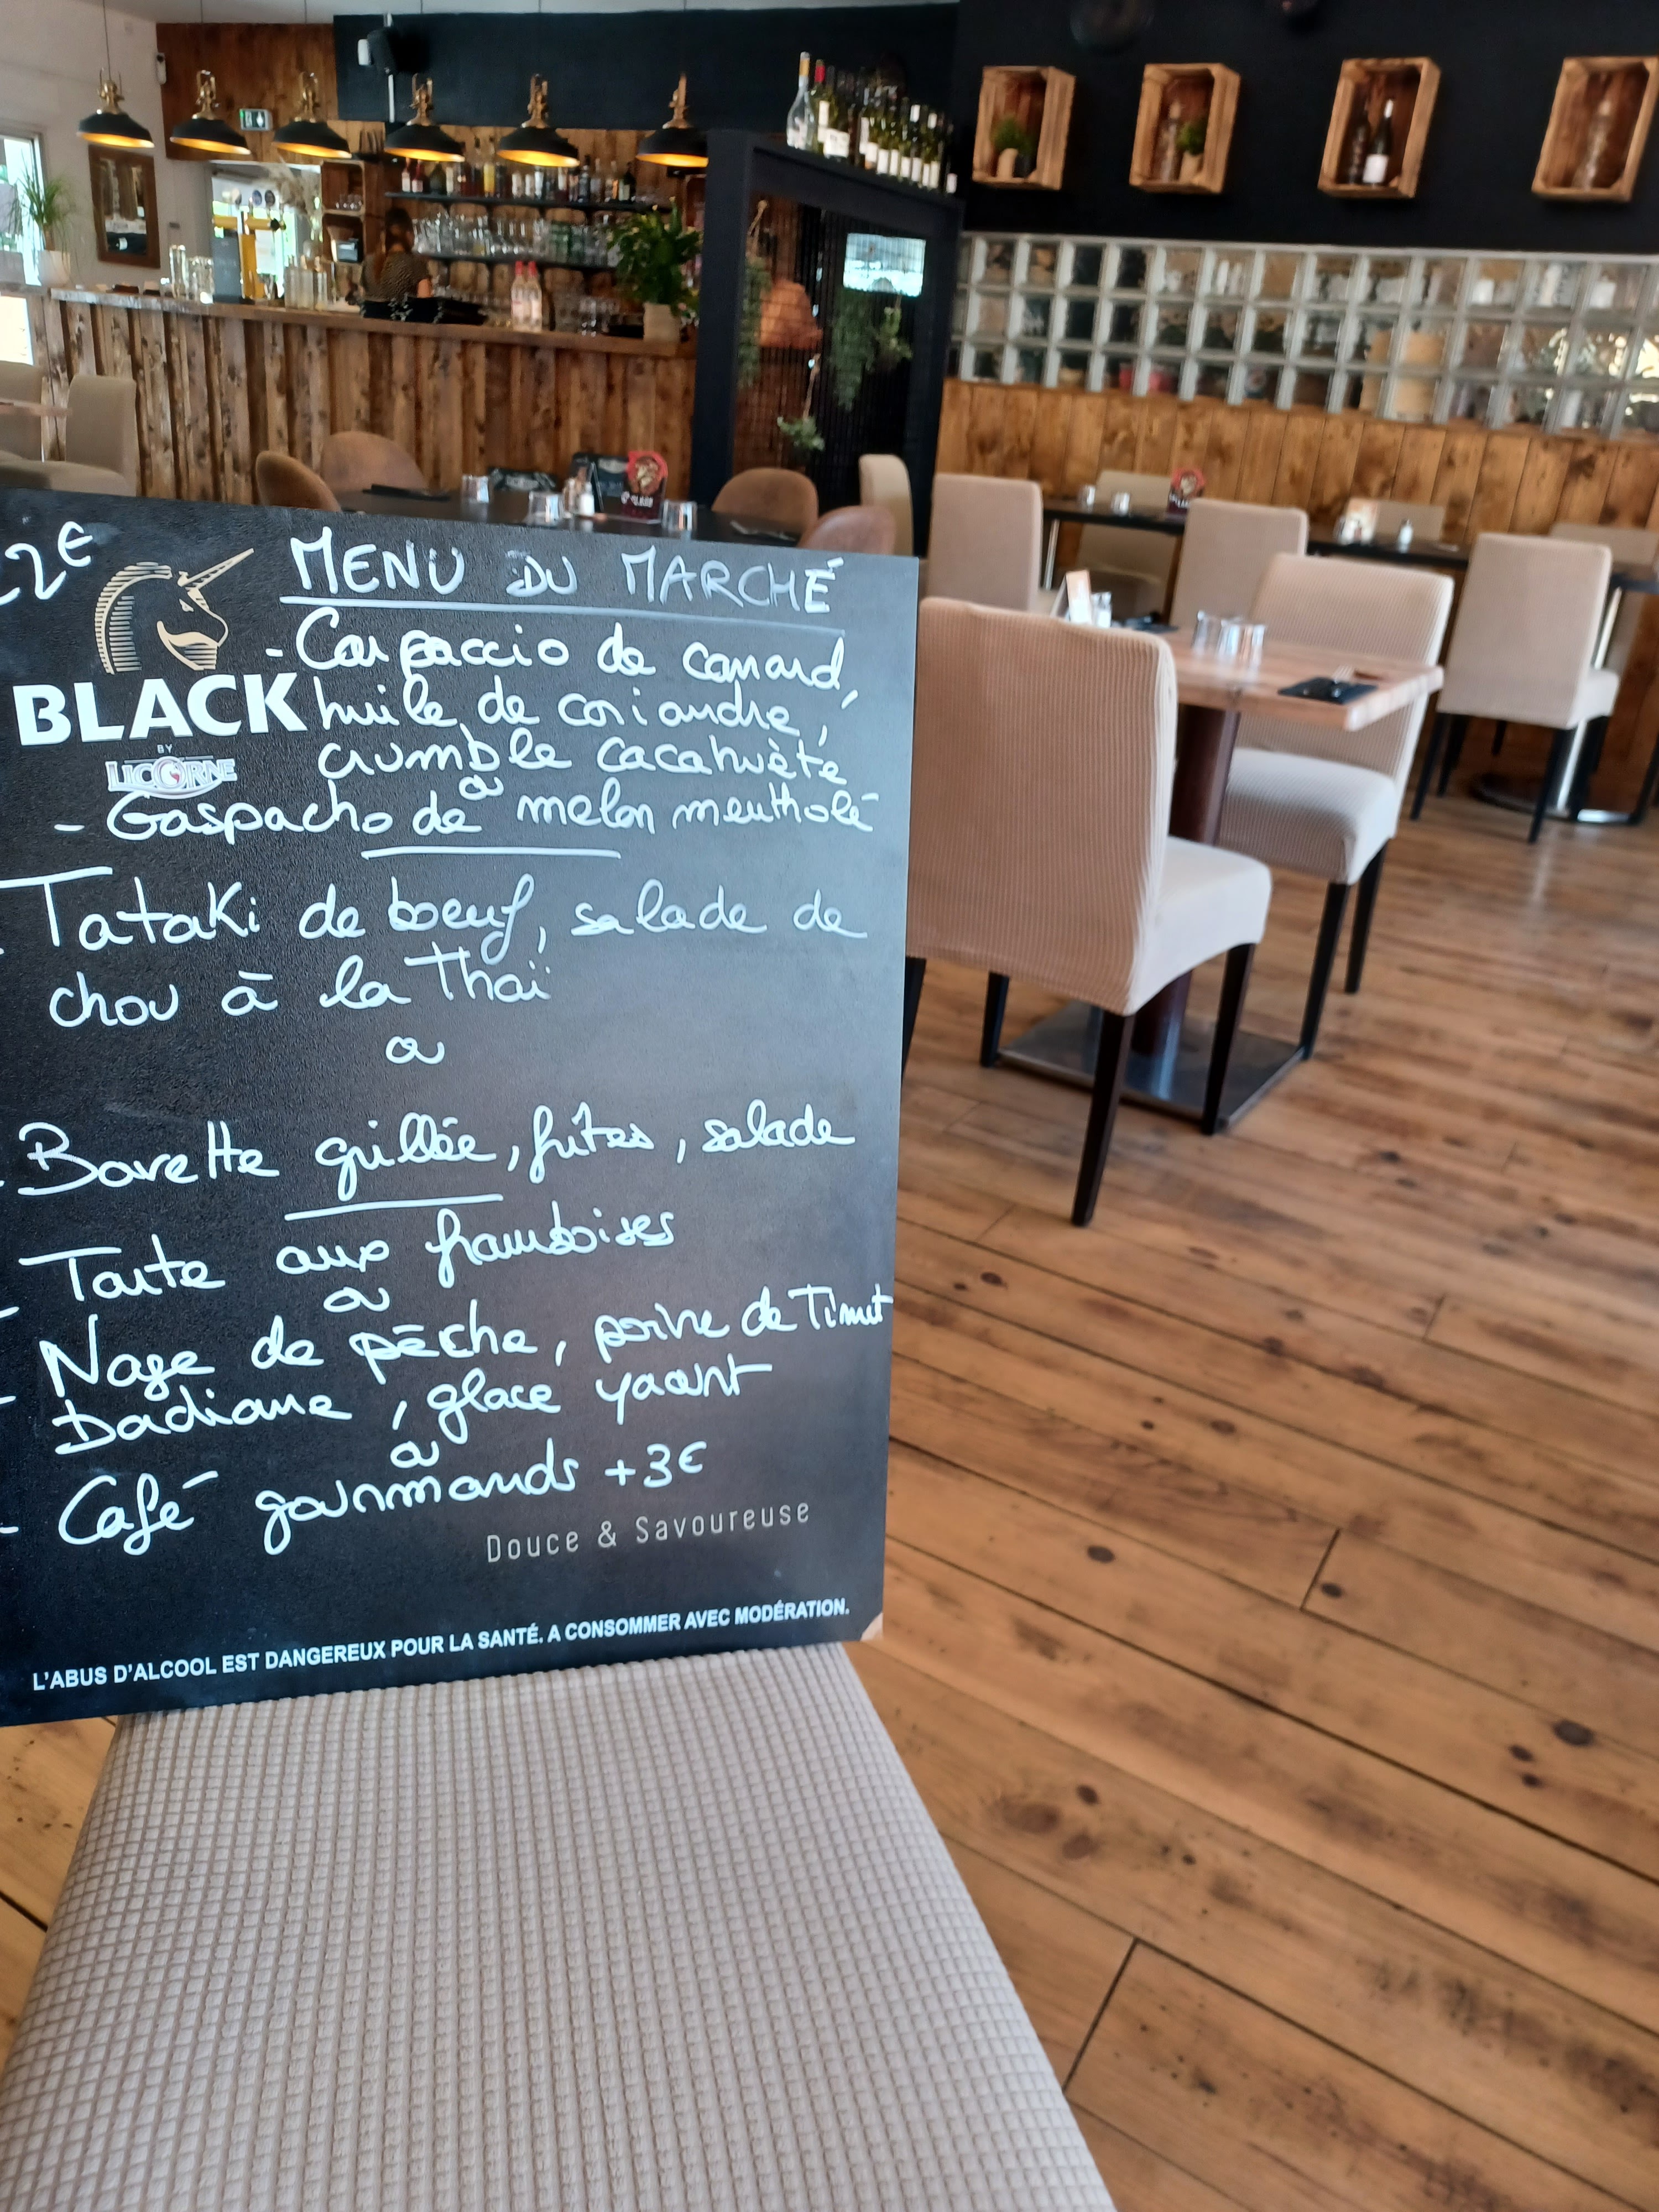 22€
MENU DU MARCHÉ
- Carpaccio de canard,
huile de coriandre,
crumble cacahuète
ou
- Gaspacho de melon mentholé
BLACK
BY
LICORNE
- Tataki de boeuf, salade de
chou à la Thaï
ou
- Bavette grillée, frites, salade
- Tarte aux framboises
ou
- Nage de pêche, poivre de Timut
Badiane, glace yaourt
ou
- Café gourmands +3€
Douce & Savoureuse
L'ABUS D'ALCOOL EST DANGEREUX POUR LA SANTÉ. A CONSOMMER AVEC MODÉRATION.